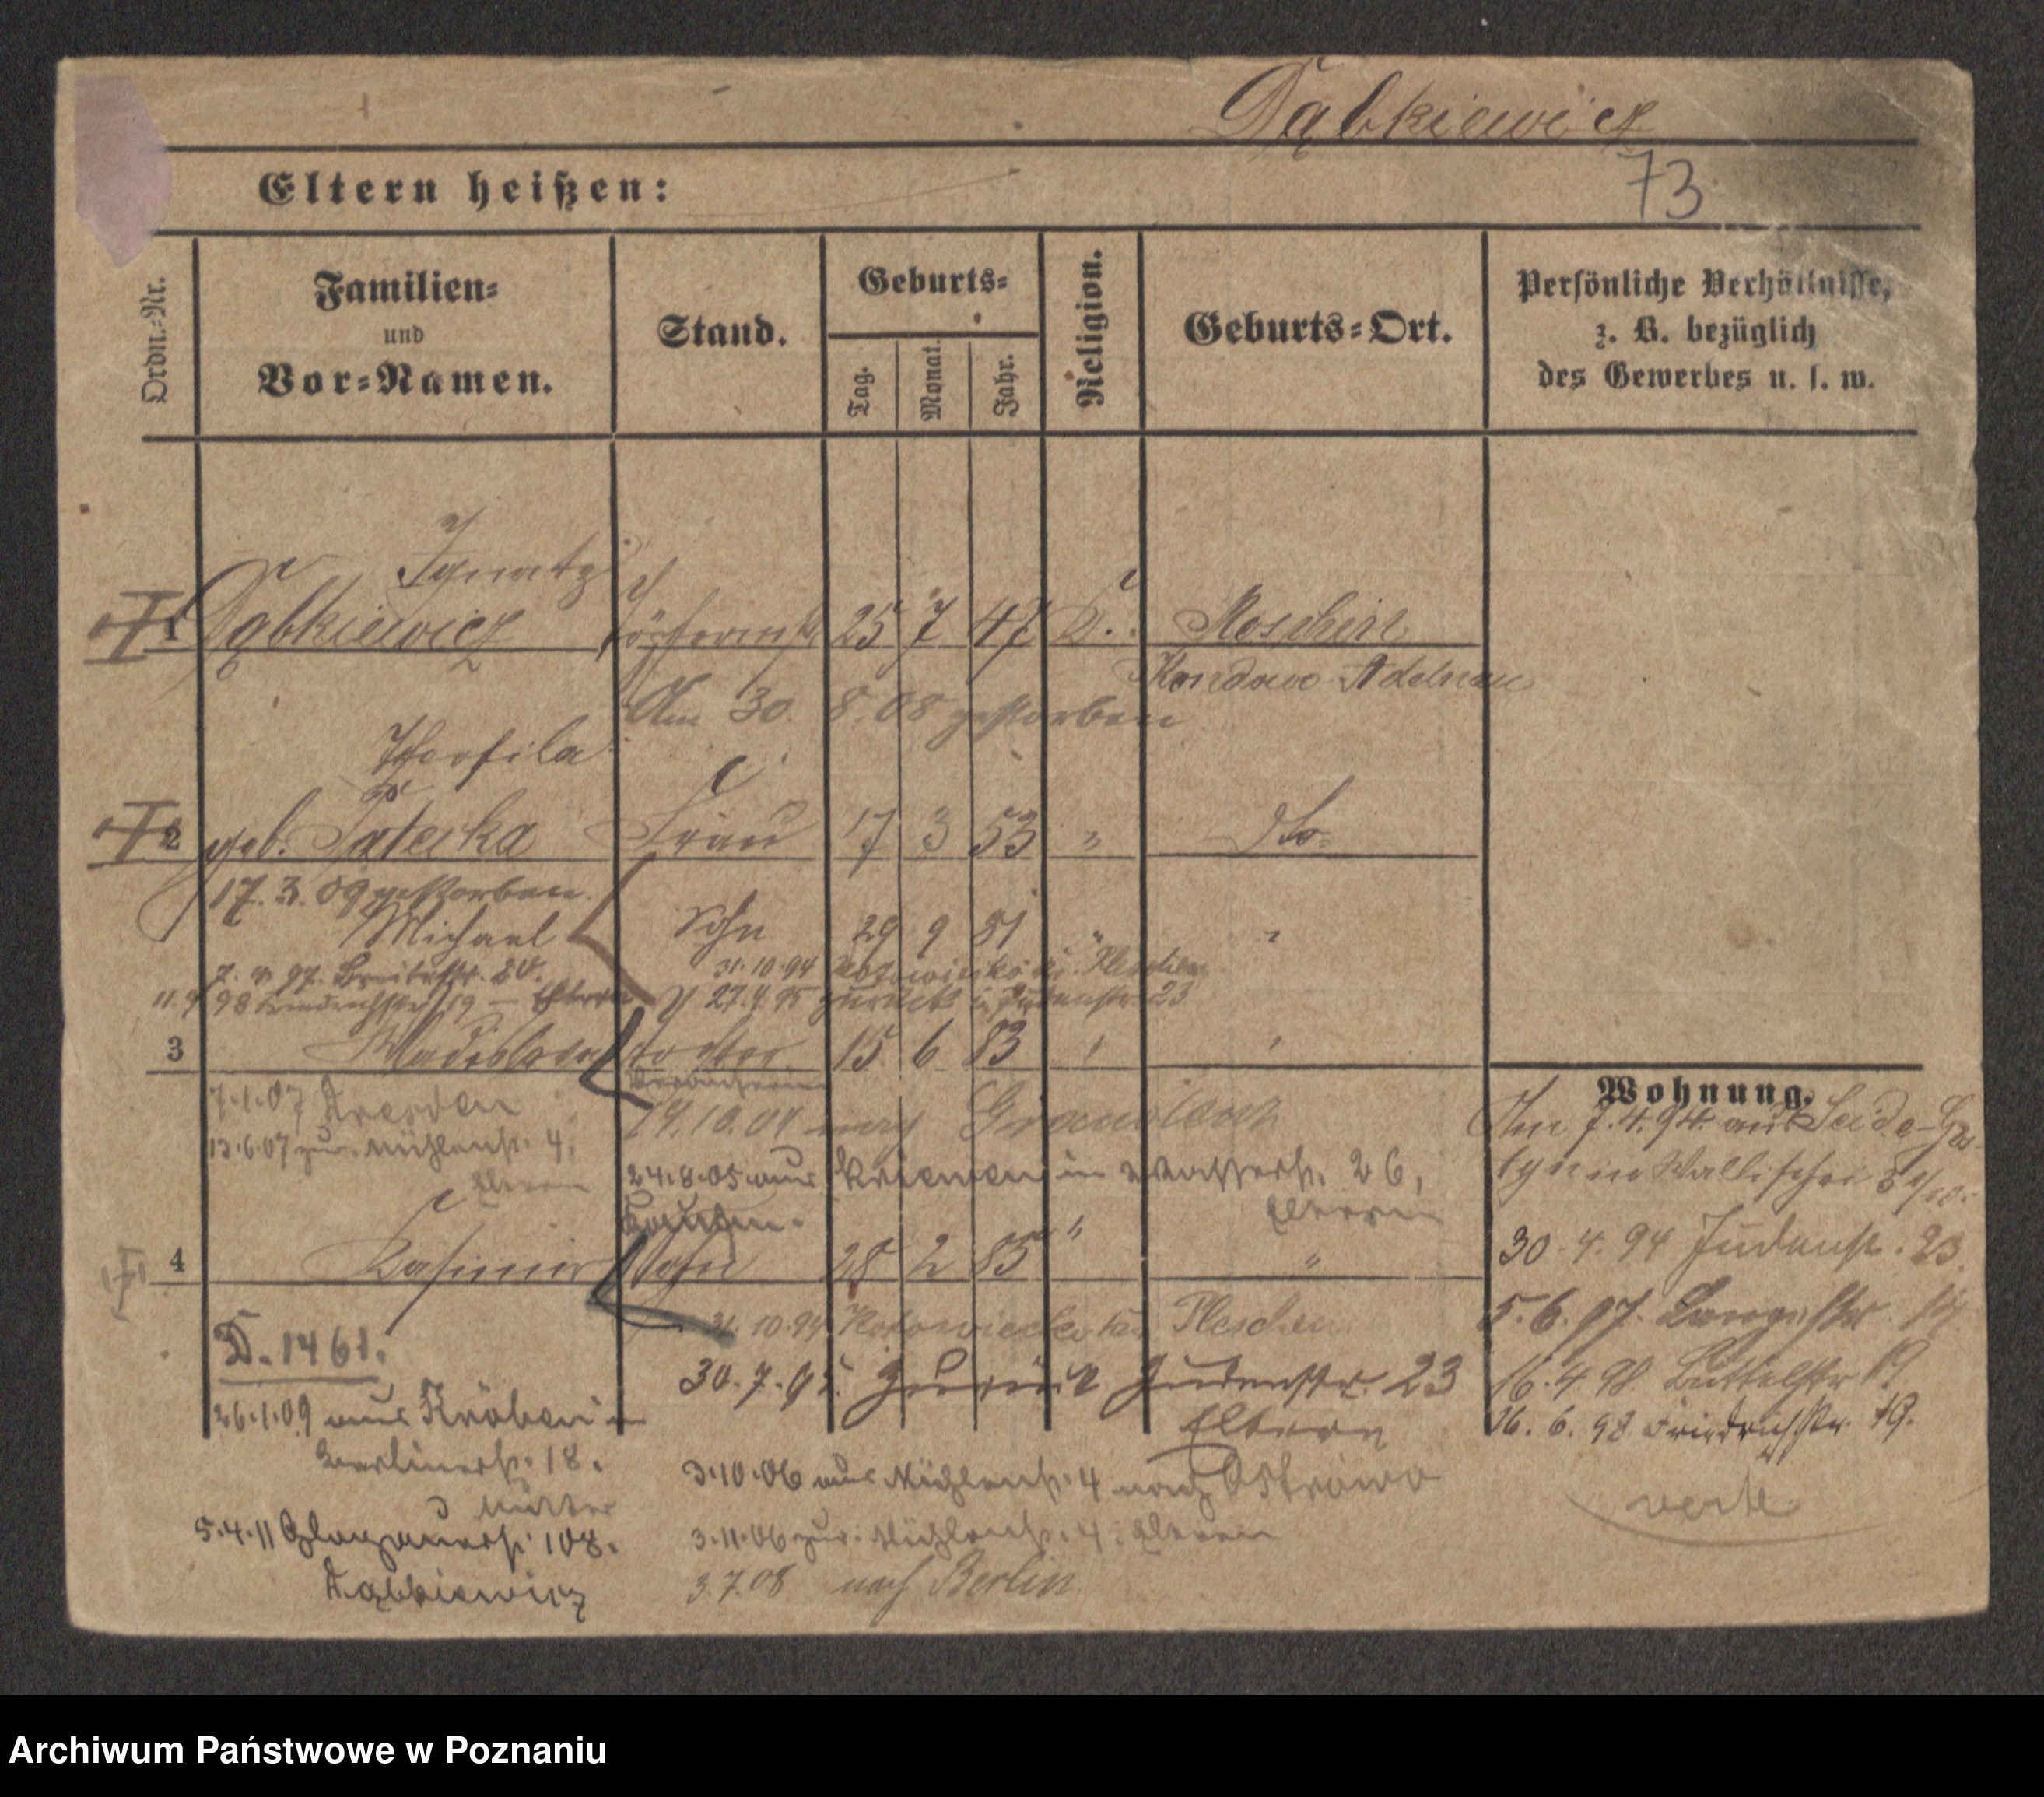 Dąbkiewicz
73
Eltern heißen:
Ordn.=Nr.
Familien=
und
Vor=Namen.
Stand.
Geburts=
Tag.
Monat.
Jahr.
Religion.
Geburts=Ort.
Persönliche Verhältnisse,
z. B. bezüglich
des Gewerbes u. s. w.
Ignatz
1 Dąbkiewicz 25 7 47 Moschin
Adelnau
Am 30. 8. 08 gestorben
Theofila
2 geb. Frau 17 3 53 " dto
17. 3. 09 gestorben.
Michael Sohn 29 9 81 "
7. 97. Breitestr. 20.
31.10.94 Pleschen
11.9.98 Friedrichstr. 19 – Eltern
27.4.95 zurück in Judenstr. 23
3 Wladislawa Tochter 15 6 83 "
7.1.07 Dresden
13.6.07 zur. Mühlenstr. 4.
Eltern
nach
24.8.05 aus Kriewen in Wasserstr. 26,
Eltern
4 Kasimir Sohn 28 2 85 " "
31.10.94 Pleschen
30.7.95. zurück Judenstr. 23
Eltern
D. 1461.
26.1.09 aus Kröben in
Berlinerstr. 18.
Mutter
5.4.11 Glogauerstr. 108.
Dąbkiewicz
3.10.06 aus Mühlenstr. 4 nach Ostrowo
3.11.06 zur. Mühlenstr. 4. Eltern
3.7.08 nach Berlin
Wohnung.
Am 7.4.94 aus
in Wallischei
30.4.94 Judenstr. 23.
5.6.97. Langestr.
16.4.98. Büttelstr. 19
16.6.98 Friedrichstr. 19.
verte
Archiwum Państwowe w Poznaniu